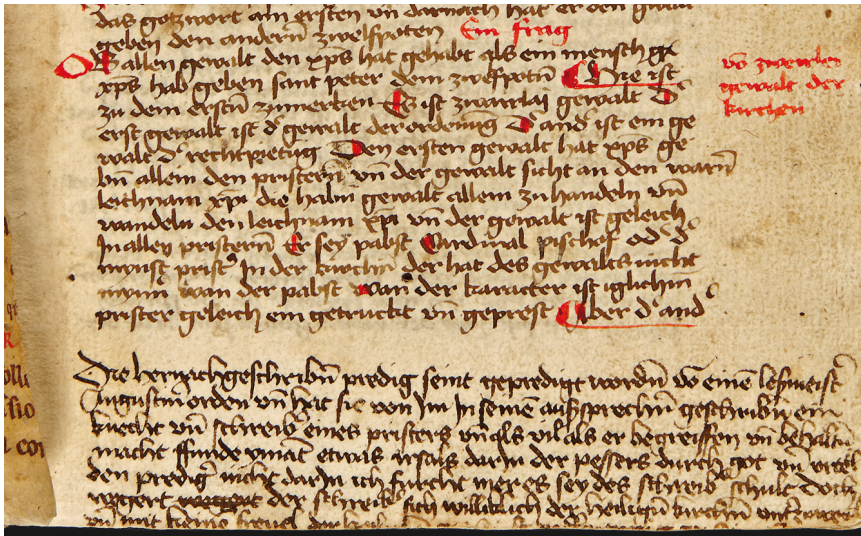 das gotzwort am ersten vn̄ darnach hat er den
geben den andern̄ zwelfpoten Ein frag
Ob allen gewalt den xp̄s hat gehabt als ein mensch
xp̄s hab geben sant peter dem zwelfpotn̄ Hie ist
zu dem erstn̄ zumerken Ez ist zwairlaj gewalt D'
erst gewalt ist d' gewalt der ordenūg D' and' ist ein ge
walt d' rechtpietūg Den ersten gewalt hat xp̄s ge
bn̄ allem den pristern̄ vn̄ der gewalt sicht an den warn̄
leichnam xp̄i die habn̄ gewalt allem zu handeln vn̄
wandeln den leichnam xp̄i vn̄ der gewalt ist geleich
In allen pristern̄ Er sey pabst Cardinal pischof od' d'
mynst prist' In der kirchn̄ der hat des gewalts nicht
mynn̄ wan der pabst wan̄ der karacter ist iglichm̄
prister geleich ein getruckt vn̄ geprest Aber d' and'
vō zwairlai
gewalt der
kirchen
Die hernachgeschribn̄ predig seint gepredigt wordn̄ vō einē leſmeist'
Augustin̄ orden vn̄ hat sie von Im In seinē auſsprechn̄ geschribn̄ ein
knecht vn̄ schreib' eines pristers vn̄ als vil als er begreiffen vn̄ behaltn̄
macht ffunde ymāt etwas irsals darin̄ der pessers durch got vn̄
den predig' nicht darin̄ ich furcht mer es sey des schreib' schult doch
wegert der schreib' sich williklich der heilign̄ kirchn̄
vn̄ mit